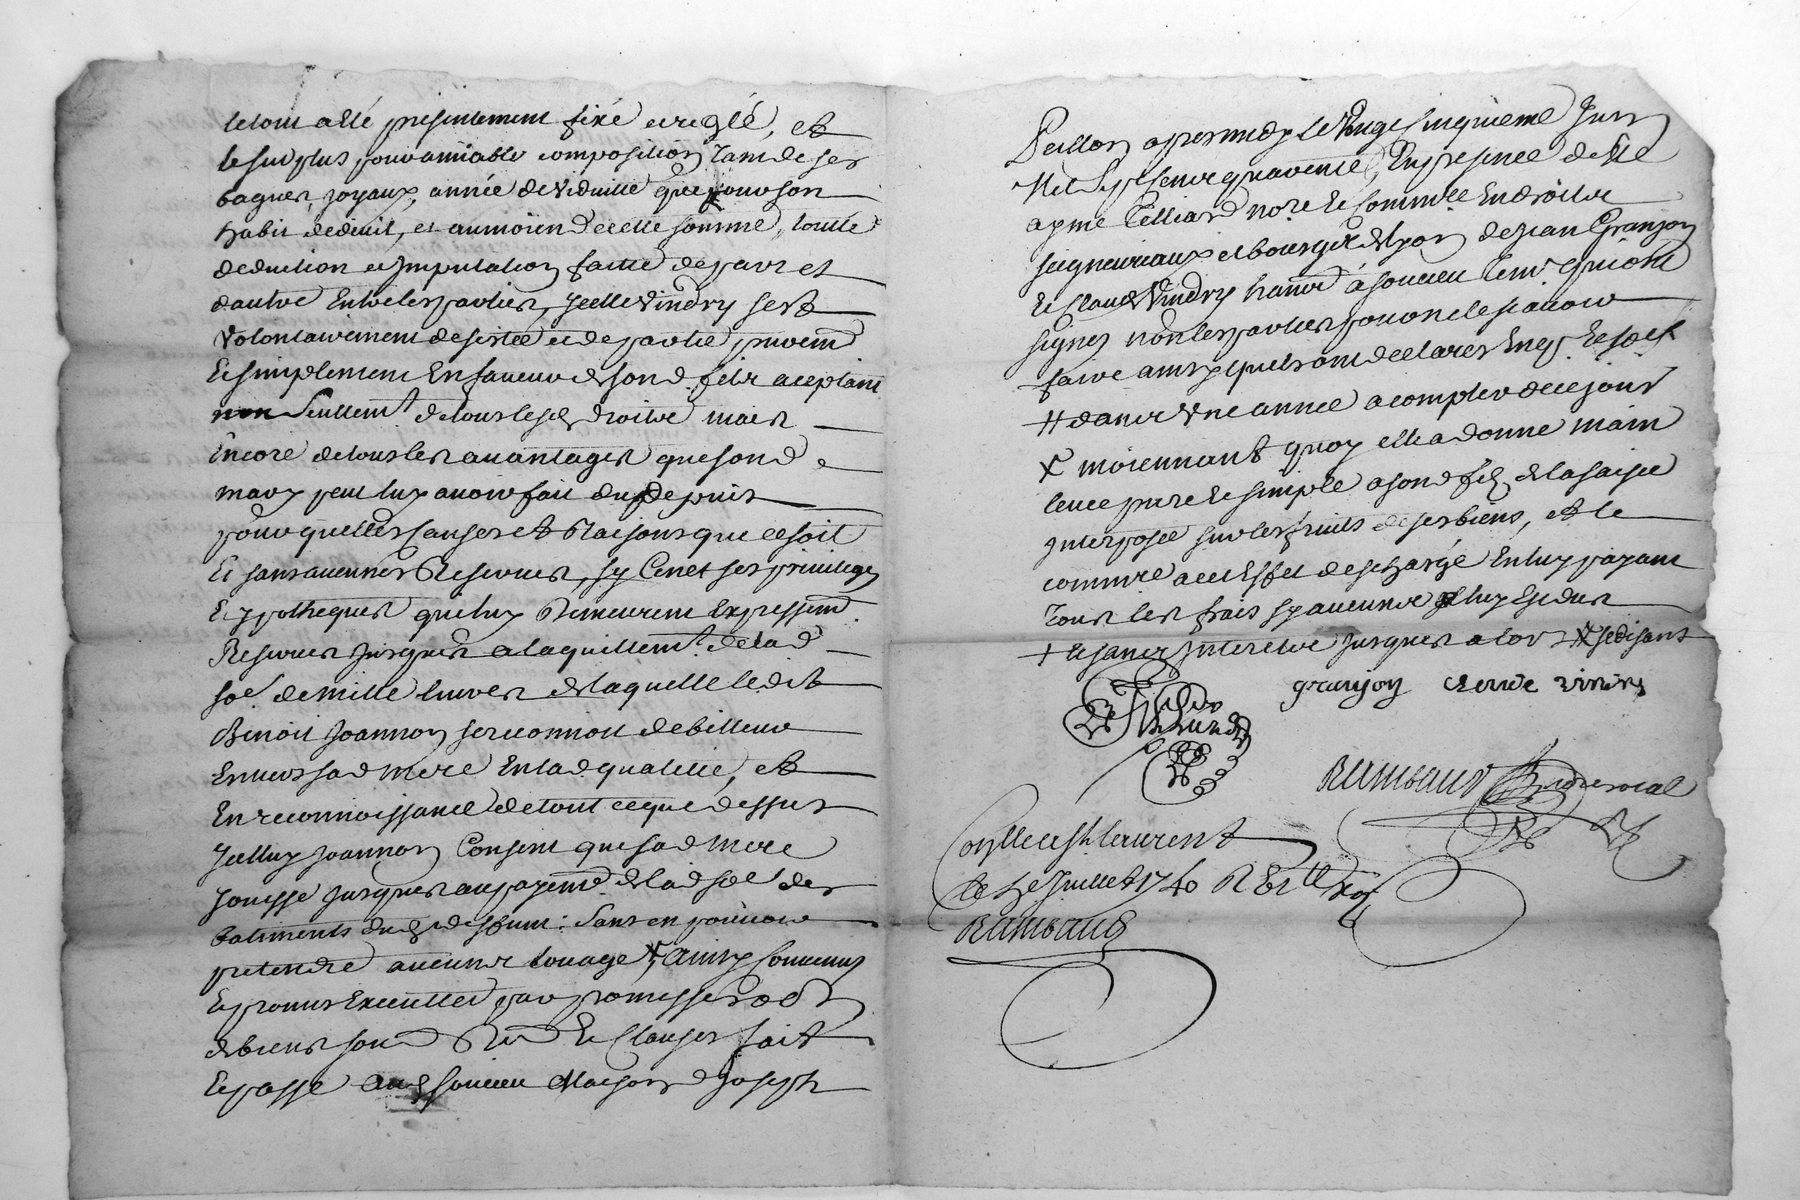 le tout a esté presentement fixé et reglé, et
le surplus pour amiable composition tant de ses
bagues, joyaux, année de viduitté que pour son
habit de deüil, et au moien de cette somme, toutte
deduction et imputation faitte de part et
dautre entre les parties, jcelle Vindry sest
volontairement desistée et departie purem.t
Et simplement en faveur de sond. fils aceptant
non seullem.t de tous lesd. droits mais
Encore de tous les avantages que sond.
mary peut luy avoir fait du depuis
pour quelles causes et Raisons que ce soit
Et sans aucunes Reserves, sy Ce nest ses privileges
Et ypotheques qui luy demeurent Expressem.t
Reservés jusques a laquittem.t de lad.
so.e de mille livres de laquelle ledit
Benoit Joannon se reconnoit debitteur
Envers sad. mere En lad. qualitté, et
En reconnoissance de tout ce que dessus
Jcelluy Joannon Consent que sad. mere
Jouisse jusques au payem.t de lad. so.e des
batiments dud. deffunt: sans en pouvoir
pretendre aucuns louage ainsy Convenus
Et promis Executter par promesses
de biens soum Ren Et Clauses fait
Et passé aud. Soucieu Maison de Joseph
apres midy le Vingt cinquieme Juin
Mil sept cent quarente, En presence de
Tilliard no.re Et Commre En droits
seigneuriaux et bourgeois de Lyon de jean Granjon
Et Claude Vindry hant à Soucieu Tem. qui ont
signés non les parties pour ne le scavoir
faire ainsy quels ont declarés Enq. Et so.es
# dans une année a compter de ce jour
X moiennant quoy elle a donné main
levée pure Et simple a sond. fils de la saisie
jnterposée sur les fruits de ses biens, et le
commre a cet Effet deschargé En luy payant
Tous les frais sy aucuns luy En dus
+ Et sans jnterets jusques alors X se disant
granjon Claude vindry
Rambaud
Con.lle a St laurent
le 5e Juillet 1740 R
Rambaud